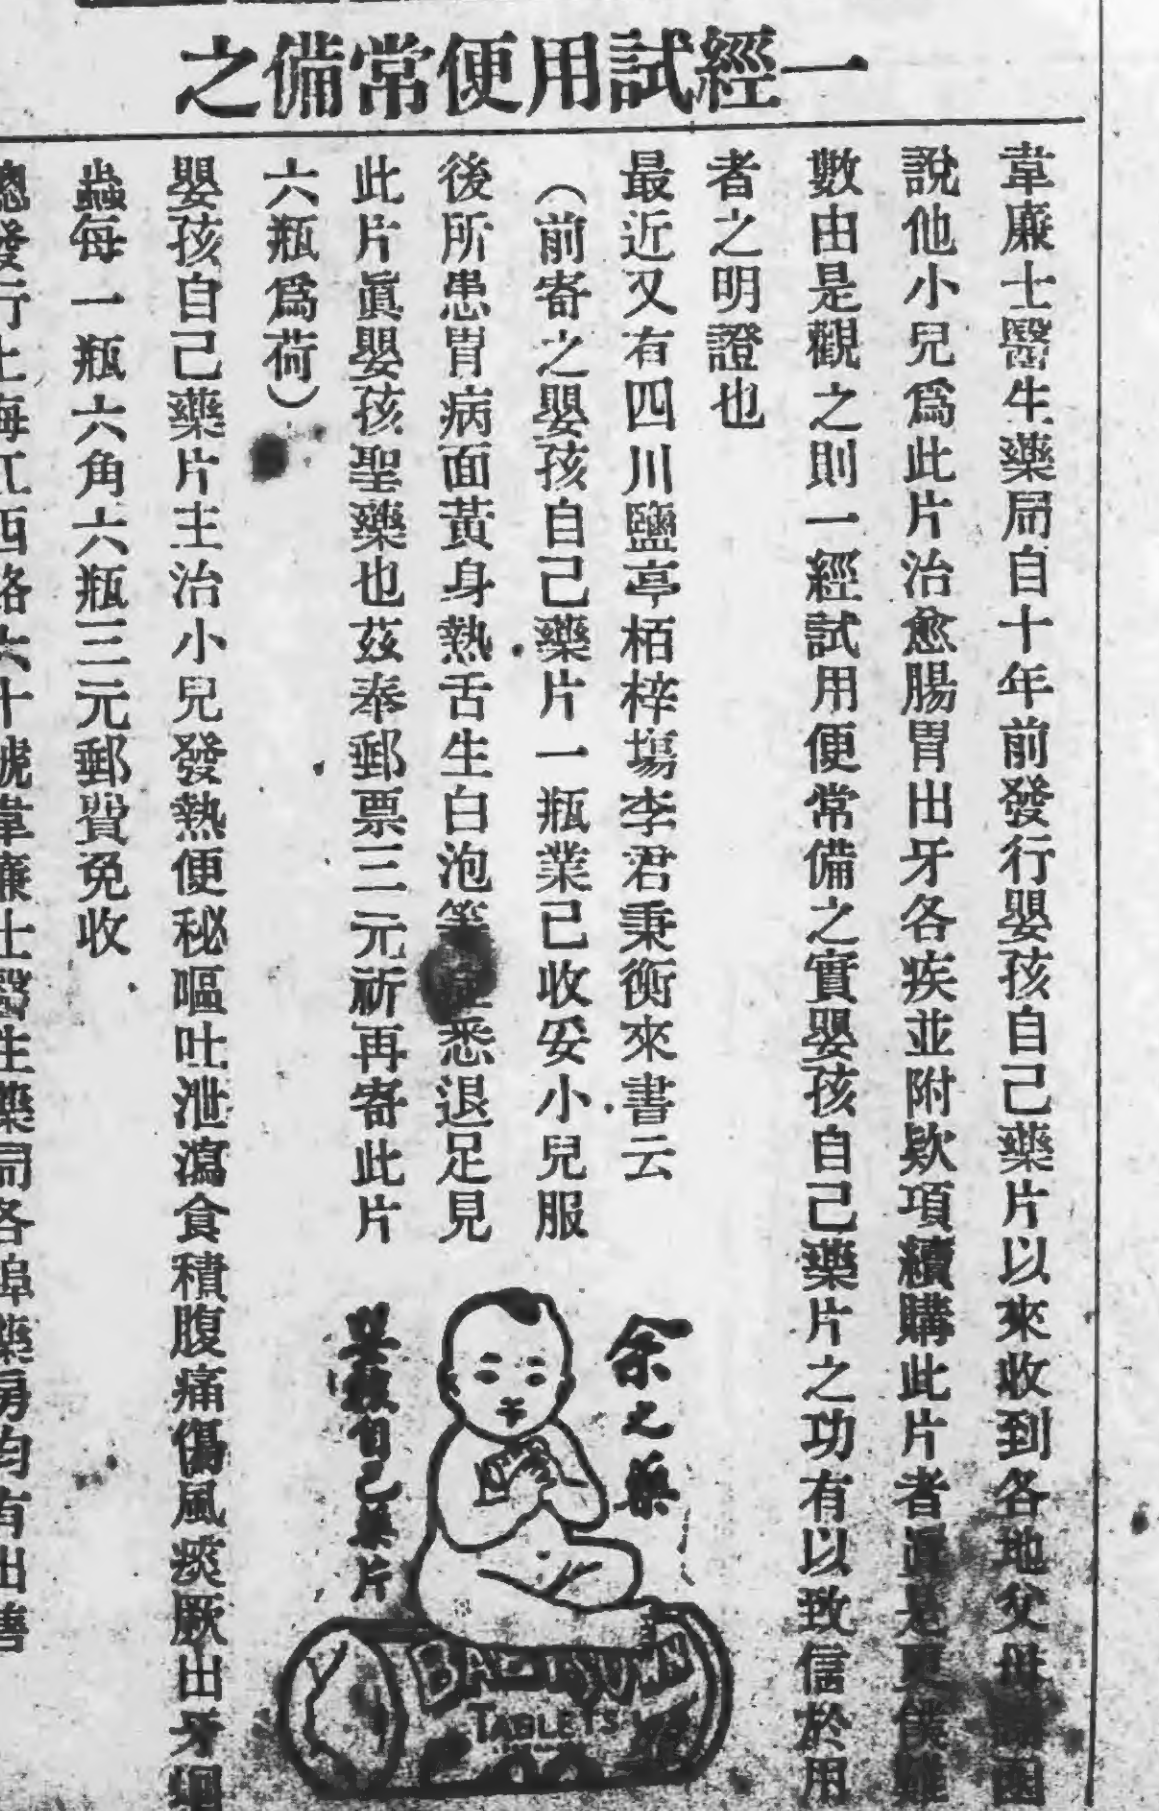 一經試用便常備之
韋廉士醫生藥局自十年前發行嬰孩自己藥片以來收到各地父母函
說他小兒爲此片治愈腸胃出牙各疾並附欵項續購此片者眞是更僕難
數由是觀之則一經試用便常備之實嬰孩自己藥片之功有以致信於用
者之明證也
最近又有四川鹽亭栢梓塲李君秉衡來書云
(前寄之嬰孩自己藥片一瓶業已收妥小兒服
後所患胃病面黃身熱舌生白泡等症悉退足見
此片眞嬰孩聖藥也茲奉郵票三元祈再寄此片
六瓶爲荷)
嬰孩自己藥片主治小兒發熱便秘嘔吐泄瀉食積腹痛傷風痰厥出牙蛔
蟲每一瓶六角六瓶三元郵費免收
總發行上海江西路六十號韋廉士醫生藥局各埠藥房均有出售
余之藥
嬰孩自己藥片
BABY'S OWN
TABLETS